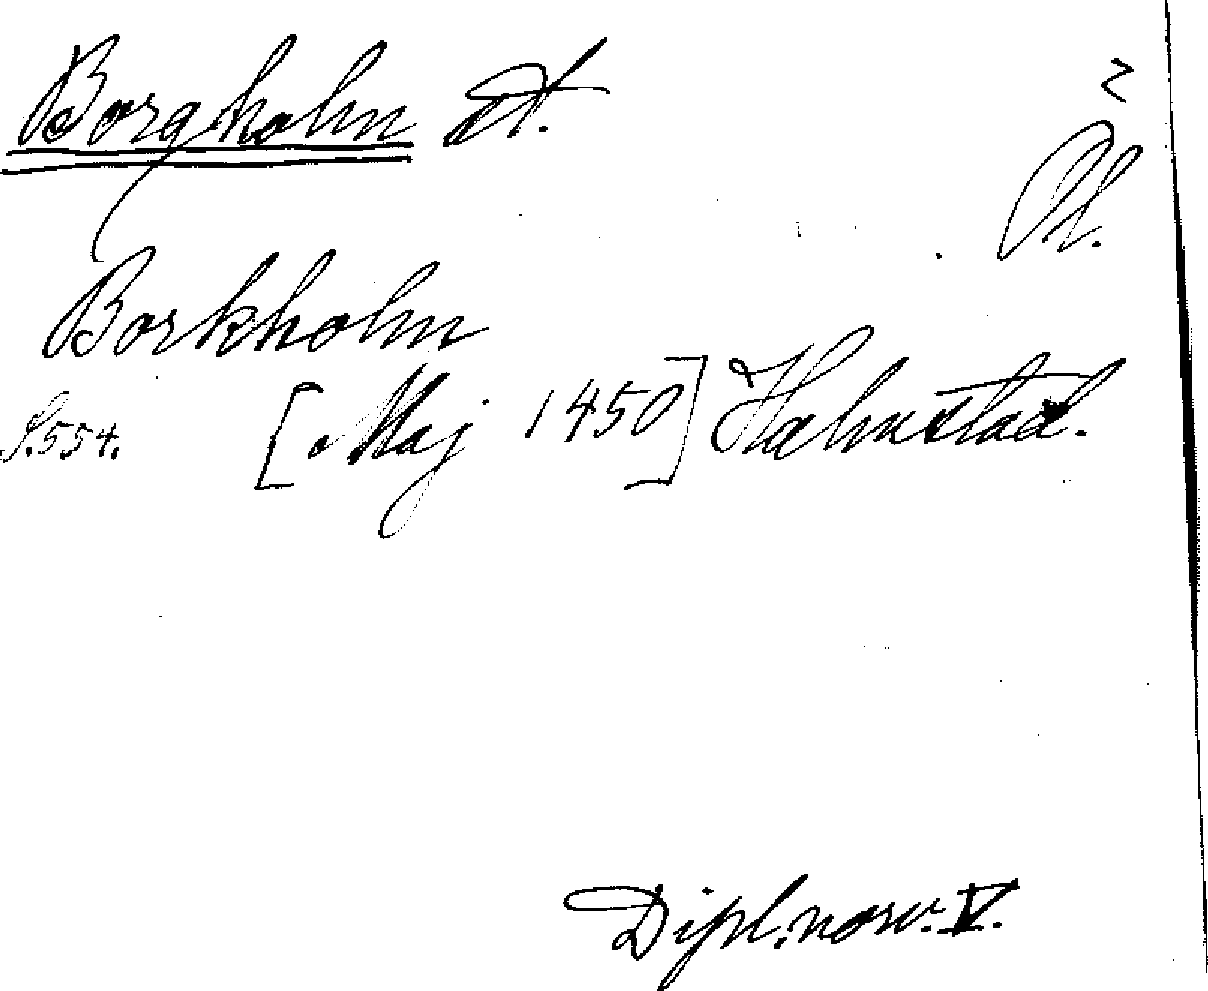 Borgholm st. 2
Öl.
Borkholm
S. 554. [Maj 1450] Halmstad.
Dipl. norv. V.